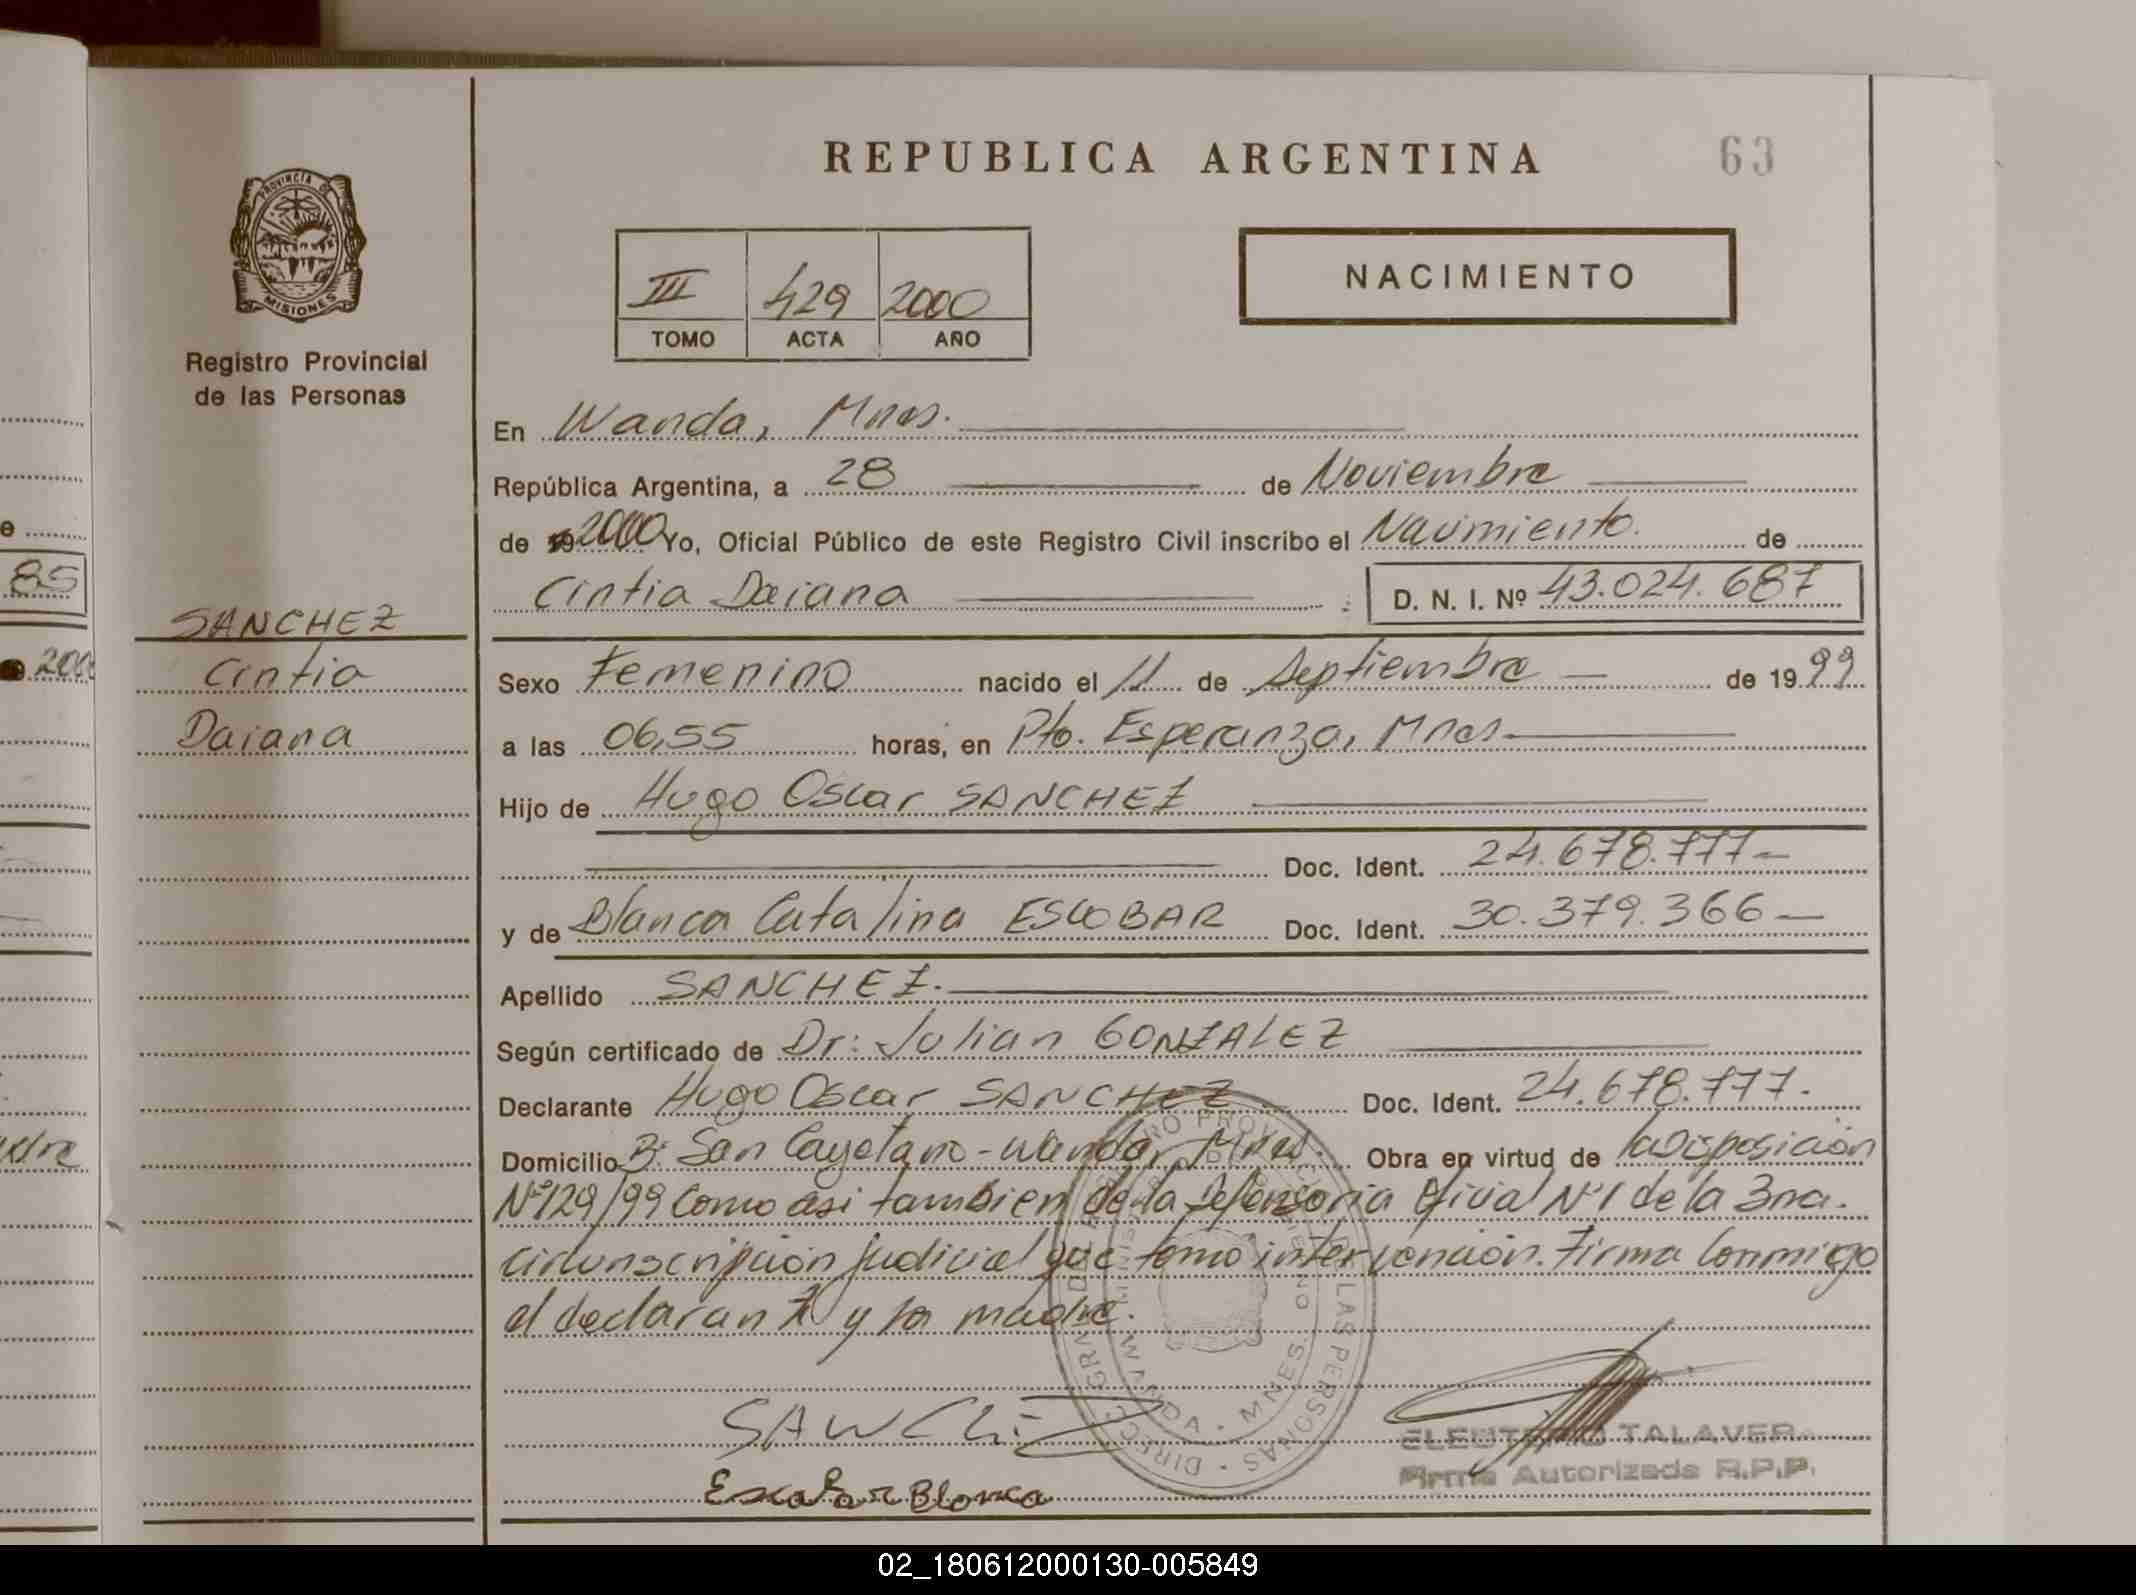 REPUBLICA ARGENTINA
63
PROVINCIA DE
MISIONES
Registro Provincial
de las Personas
III 429 2000
TOMO ACTA AÑO
NACIMIENTO
En Wanda, Mnes.
República Argentina, a 28 de Noviembre
de 19 2000 Yo, Oficial Público de este Registro Civil inscribo el Nacimiento. de
Cintia Daiana D. N. I. Nº 43.024.687
85
SANCHEZ
Cintia
Daiana
2000
Sexo Femenino nacido el 11 de Septiembre de 19 99
a las 06,55 horas, en Pto. Esperanza, Mnes.
Hijo de Hugo Oscar SANCHEZ
Doc. Ident. 24.678.777
y de Blanca Catalina ESCOBAR Doc. Ident. 30.379.366
Apellido SANCHEZ.
Según certificado de Dr: Julian GONZALEZ
Declarante Hugo Oscar SANCHEZ Doc. Ident. 24.678.777.
Domicilio Bº San Cayetano - Wanda, Mnes. Obra en virtud de la Disposición
Nº 129/99 como asi tambien de la Defensoria Oficial Nº 1 de la 3ra.
circunscripción judicial que tomó intervención. Firma conmigo
el declarante y la madre.
SANCHEZ
Escobar Blanca
ELEUTERIO TALAVER
Firma Autorizada R.P.P.
WANDA · MNES.
02_180612000130-005849